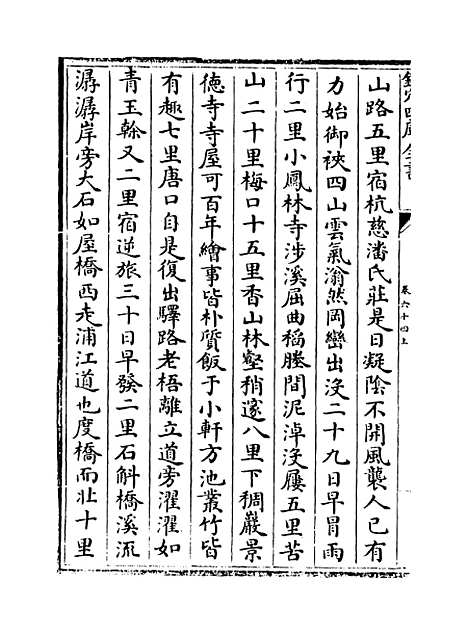 欽定四庫全書
卷六十四上
山路五里宿杭慈潘氏莊是日凝陰不開風襲人已有
力始御裌四山雲氣滃然岡巒出沒二十九日早冒雨
行二里小鳳林寺涉溪屈曲稻塍間泥淖沒屨五里苦
山二十里梅口十五里香山林壑稍邃八里下稠巖景
德寺寺屋可百年繪事皆朴質飯于小軒方池叢竹皆
有趣七里唐口自是復出驛路老梧離立道旁濯濯如
青玉榦又二里宿逆旅三十日早發二里石斛橋溪流
潺潺岸旁大石如屋橋西走浦江道也度橋而北十里